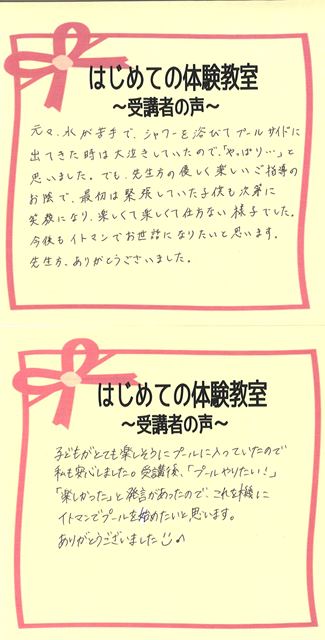 はじめての体験教室
～受講者の声～
元々、水が苦手で、シャワーを浴びてプールサイドに
出てきた時は大泣きしていたので、「やっぱり…」と
思いました。でも、先生方の優しく楽しいご指導の
お陰で、最初は緊張していた子供も次第に
笑顔になり、楽しくて楽しくて仕方ない様子でした。
今後もイトマンでお世話になりたいと思います。
先生方、ありがとうございました。
はじめての体験教室
～受講者の声～
子どもがとても楽しそうにプールに入っていたので
私も安心しました。受講後、「プールやりたい！」
「楽しかった」と発言があったので、これを機に
イトマンでプールを始めたいと思います。
ありがとうございました